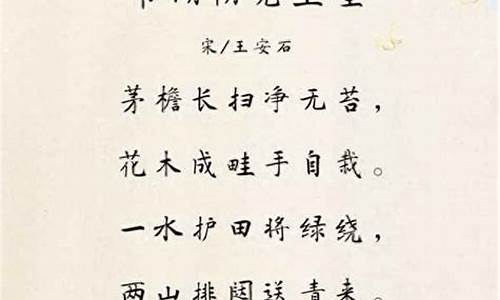 宋/王安石
茅檐长扫净无苔，
花木成畦手自栽。
一水护田将绿绕，
两山排闼送青来。